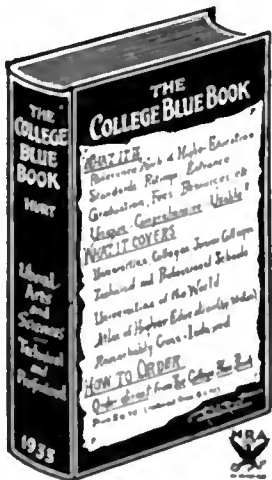 THE
COLLEGE
BLUE
BOOK
HURT
Liberal
Arts
and
Sciences
Technical
and
Professional
1933
THE
COLLEGE BLUE BOOK
WHAT IT IS
of Higher Education
Standards, Ratings, Entrance
Graduation, Fees, Resources, etc
Unique, Comprehensive, Usable!
WHAT IT COVERS
Universities, Colleges, Junior Colleges
Technical and Professional Schools
Universities of the World
Atlas of Higher Education
Remarkably Cross-Indexed
HOW TO ORDER
Order direct from The College Blue Book
NRA